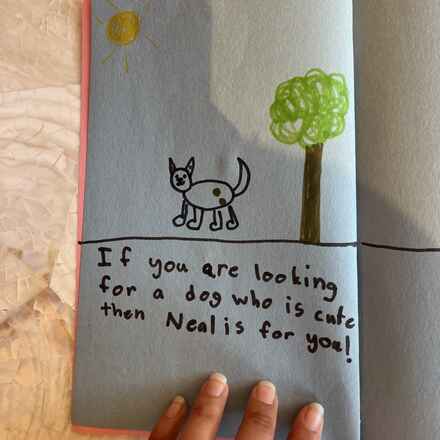 If you are looking
for a dog who is cute
then Neal is for you!